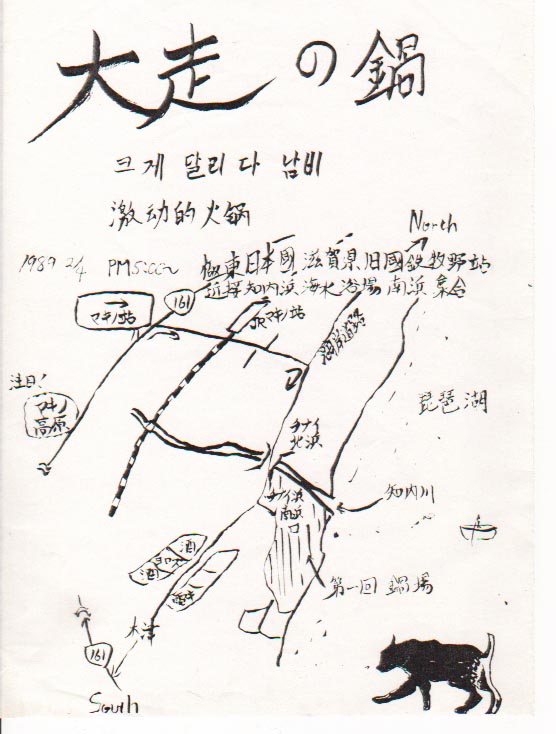 大走の鍋
크게 달리다 남비
激动的火锅
North
1989 2/4 PM5:00~ 極東日本國 滋賀県旧國鉄牧野站
近接知内浜 海水浴場 南浜 集合
161
マキノ站
JRマキノ站
湖岸道路
注目!
マキノ
高原
琵琶湖
チナイ
北浜
チナイ浜
南浜
口
知内川
酒
酒
第一回 鍋場
大津
161
South